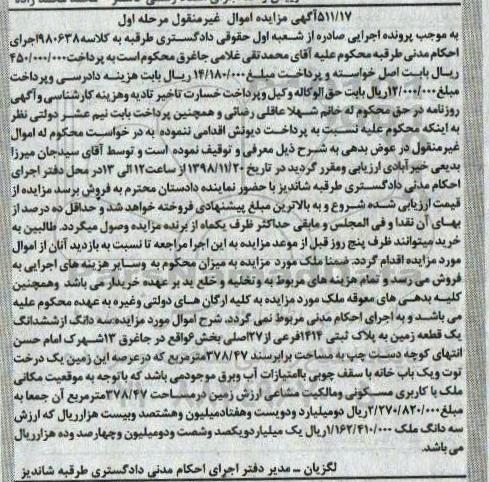 ۵۱۱/۱۷آگهی مزایده اموال غیرمنقول مرحله اول
به موجب پرونده اجرایی صادره از شعبه اول حقوقی دادگستری طرقبه به کلاسه۹۸۰۶۳۸اجرای
احکام مدنی طرقبه محکوم علیه آقای محمدتقی غلامی جاغرق محکوم است به پرداخت۴۵۰/۰۰۰/۰۰۰
ریال بابت اصل خواسته و پرداخت مبلغ۱۴/۱۸۰/۰۰۰ ریال بابت هزینه دادرسی وپرداخت
مبلغ۱۲/۰۰۰/۰۰۰ریال بابت حق الوکاله وکیل وپرداخت خسارت تاخیر تادیه وهزینه کارشناسی وآگهی
روزنامه در حق محکوم له خانم شهلا عاقلی رضائی و همچنین پرداخت بابت نیم عشر دولتی نظر
به اینکه محکوم علیه نسبت به پرداخت دیونش اقدامی ننموده به در خواست محکوم له اموال
غیرمنقول در عوض بدهی به شرح ذیل معرفی و توقیف نموده است و توسط آقای سیدجان میرزا
بدیعی خیر آبادی ارزیابی ومقرر گردید در تاریخ ۱۳۹۸/۱۱/۲۰ از ساعت۱۲ الی ۱۳در محل دفتر اجرای
احکام مدنی دادگستری طرقبه شاندیز با حضور نماینده دادستان محترم به فروش برسد مزایده از
قیمت ارزیابی شده شروع و به بالاترین مبلغ پیشنهادی فروخته خواهد شد و حداقل ده درصد از
بهای آن نقدا و فی المجلس و مابقی حداکثر ظرف یکماه از برنده مزایده وصول میگردد. طالبین به
خرید میتوانند ظرف پنج روز قبل از موعد مزایده به این اجرا مراجعه تا نسبت به بازدید آنان از اموال
مورد مزایده اقدام گردد. ضمنا ملک مورد مزایده به میزان محکوم به وسایر هزینه های اجرایی به
فروش می رسد و تمام هزینه های مربوط به و تخلیه و خلع ید بر عهده خریدار می باشد وهمچنین
کلیه بدهی های معوقه ملک مورد مزایده به کلیه ارگان های دولتی وغیره به عهده محکوم علیه
می باشد و به اجرای احکام مدنی مربوط نمی گردد. شرح اموال مورد مزایده:سه دانگ ازششدانگ
یک قطعه زمین به پلاک ثبتی ۱۴۱۴فرعی از۲۷اصلی بخش۶واقع در جاغرق ۱۳شهرک امام حسن
انتهای کوچه دست چپ به مساحت برابرسند ۳۷۸/۴۷مترمربع که درعرصه این زمین یک درخت
توت ویک باب خانه با سقف چوبی باامتیازات آب وبرق موجودمی باشد که باتوجه به موقعیت مکانی
ملک با کاربری مسکونی ومالکیت مشاعی ارزش زمین درمساحت ۳۷۸/۴۷مترمربع آن جمعا به
مبلغ۲/۲۷۰/۸۲۰/۰۰۰ریال دومیلیارد ودویست وهفتادمیلیون وهشتصد وبیست هزارریال که ارزش
سه دانگ ملک ۱/۱۶۲/۴۱۰/۰۰۰ریال یک میلیاردویکصد وشصت ودومیلیون وچهارصد وده هزارریال
می باشد.
لگزیان ـ مدیر دفتر اجرای احکام مدنی دادگستری طرقبه شاندیز